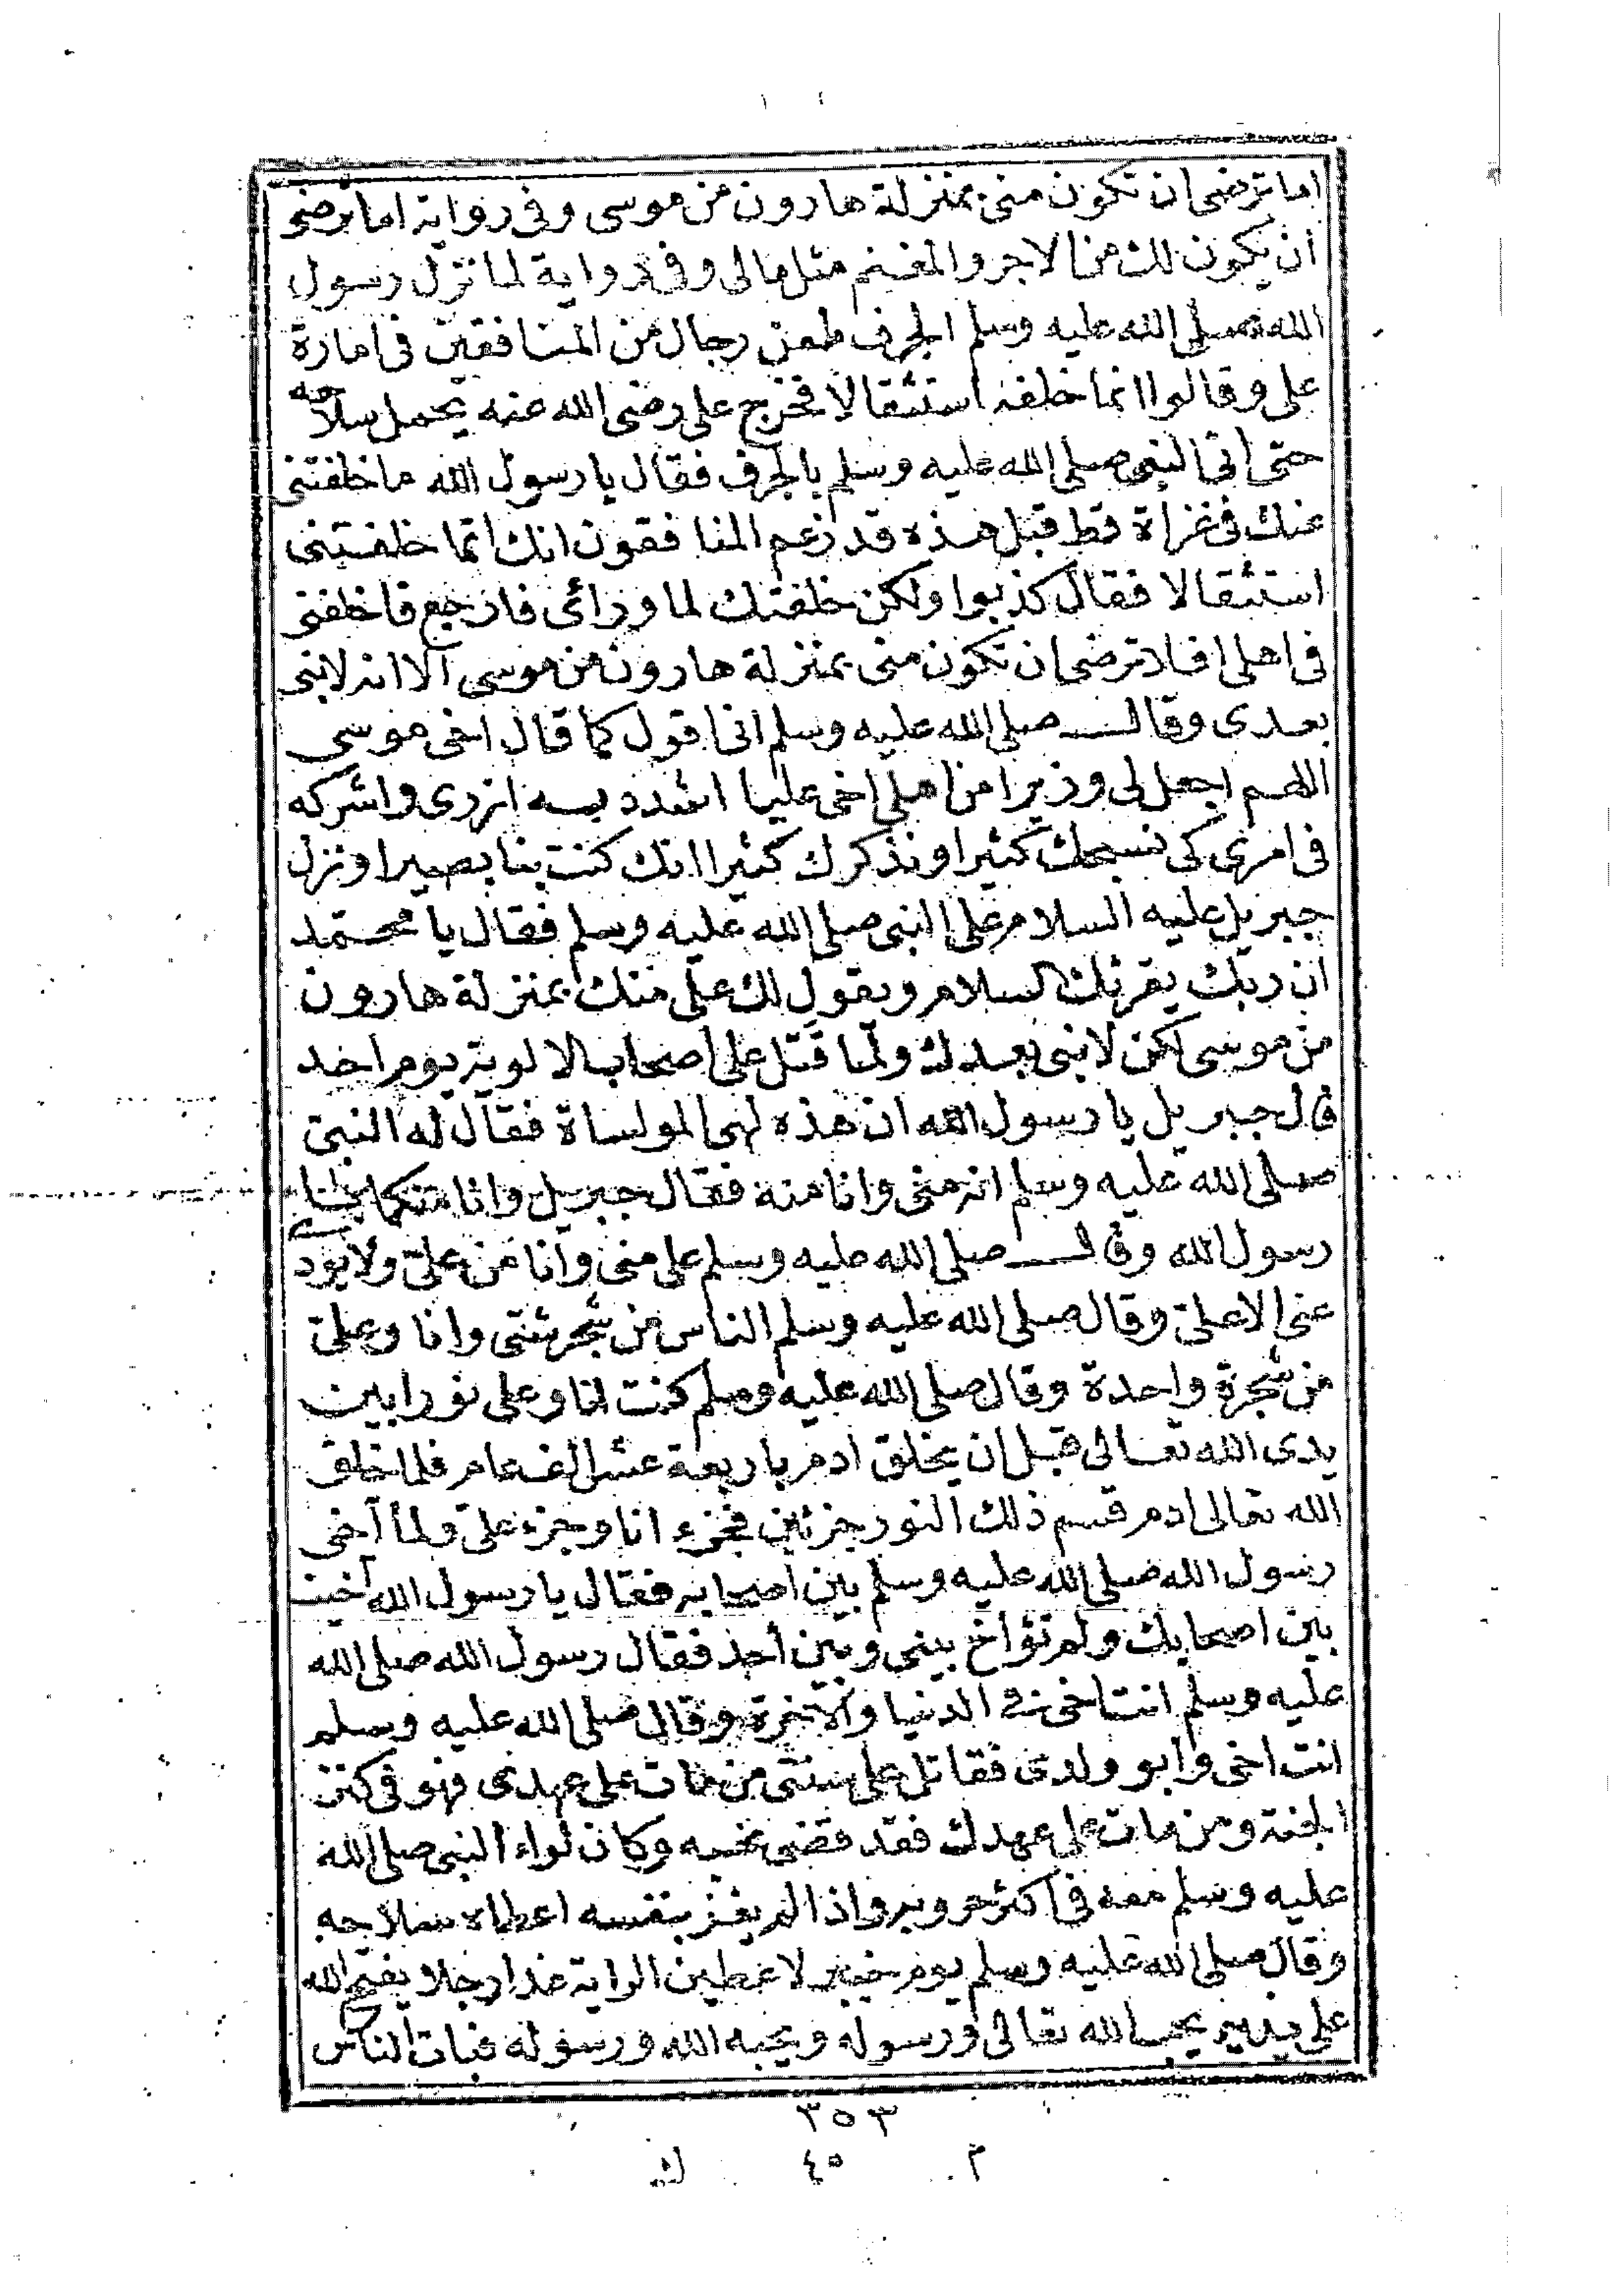 اما ترضى ان تكون منى بمنزلة هارون من موسى وفى رواية اما ترضى
ان يكون لك من الاجر والمغنم مثل مالى وفى رواية لما نزل رسول
الله صلى الله عليه وسلم الجرف طعن رجال من المنافقين فى امارة
على وقالوا انما خلفه استثقالا فخرج على رضى الله عنه يحمل سلاحه
حتى اتى النبى صلى الله عليه وسلم بالجرف فقال يا رسول الله ما خلفتنى
عنك فى غزاة قط قبل هذه قد زعم المنافقون انك انما خلفتنى
استثقالا فقال كذبوا ولكن خلفتك لما ورائى فارجع فاخلفنى
فى اهلى افلا ترضى ان تكون منى بمنزلة هارون من موسى الا انه لا نبى
بعدى وقال صلى الله عليه وسلم انى اقول كما قال اخى موسى
اللهم اجعل لى وزيرا من اهلى اخى عليا اشدد به ازرى واشركه
فى امرى كى نسبحك كثيرا ونذكرك كثيرا انك كنت بنا بصيرا ونزل
جبريل عليه السلام على النبى صلى الله عليه وسلم فقال يا محمد
ان ربك يقرئك السلام ويقول لك على منك بمنزلة هارون
من موسى لكن لا نبى بعدك ولما قتل على اصحاب الالوية يوم احد
قال جبريل يا رسول الله ان هذه لهى المواساة فقال له النبى
صلى الله عليه وسلم انه منى وانا منه فقال جبريل وانا منكما يا
رسول الله وقال صلى الله عليه وسلم على منى وانا من على ولا يؤدى
عنى الا على وقال صلى الله عليه وسلم الناس من شجر شتى وانا وعلى
من شجرة واحدة وقال صلى الله عليه وسلم كنت انا وعلى نورا بين
يدى الله تعالى قبل ان يخلق ادم باربعة عشر الف عام فلما خلق
الله تعالى ادم قسم ذلك النور جزئين فجزء انا وجزء على ولما آخى
رسول الله صلى الله عليه وسلم بين اصحابه فقال يا رسول الله آخيت
بين اصحابك ولم تؤاخ بينى وبين أحد فقال رسول الله صلى الله
عليه وسلم انت اخى فى الدنيا والآخرة وقال صلى الله عليه وسلم
انت اخى وابو ولدى فقاتل على سنتى من مات على عهدى فهو فى كنز
الجنة ومن مات على عهدك فقد قضى نحبه وكان لواء النبى صلى الله
عليه وسلم معه فى اكثر حروبه واذا لم يغز بنفسه اعطاه سلاحه
وقال صلى الله عليه وسلم يوم خيبر لاعطين الراية غدا رجلا يفتح الله
على يديه يحب الله تعالى ورسوله ويحبه الله ورسوله فبات الناس
٣٥٣
م ٤٥ ك